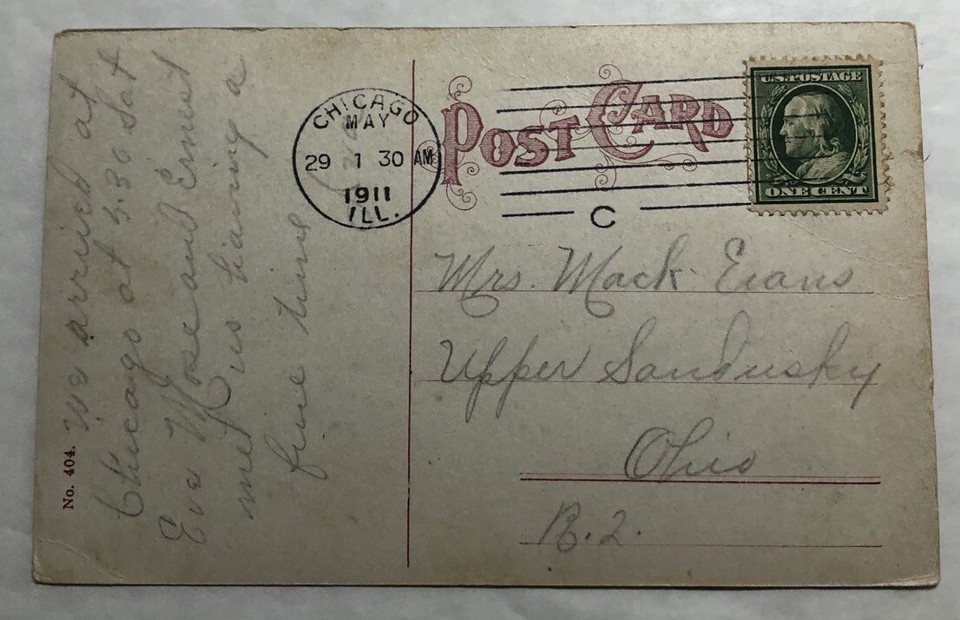 We arrived at
Chicago at 5.30 Sat
Eve Mose and Ernest
met us having a
fine time
No. 404.
CHICAGO
MAY
29 1 30 AM
1911
ILL.
POST CARD
C
U.S. POSTAGE
ONE CENT
Mrs. Mack Evans
Upper Sandusky
Ohio
R.2.